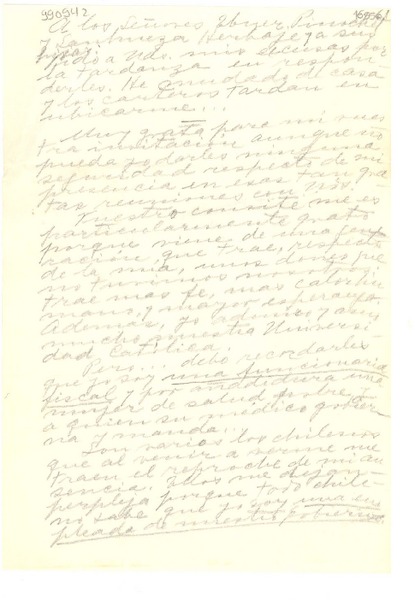 990942
A los Señores
y Sanhueza
Pido a Uds. mis excusas por
la tardanza en respon-
derles. He mudado de casa
y los carteros tardan en
ubicarme...
Muy grata para mí vues-
tra invitación aunque no
pueda yo darles ninguna
seguridad respecto de mi
presencia en esas tan gra-
tas reuniones con Uds.
Vuestro convite me es
particularmente grato
porque viene de una gene-
ración que trae, respecto
de la mía, unos dones que
no tuvimos nosotros:
trae mas fe, mas calor hu-
mano, y mayor esperanza.
Ademas, yo admiro y amo
mucho nuestra Universi-
dad Católica.
Pero... debo recordarles
que yo soy una funcionaria
fiscal y por añadidura una
mujer de salud pobre,
a quien su médico gobier-
na y manda...
Son varios los chilenos
que al venir a verme me
traen el reproche de mi au-
sencia. Ellos me dejan
perpleja porque todo chile-
no sabe que yo soy una em-
pleada de nuestro Gobierno.